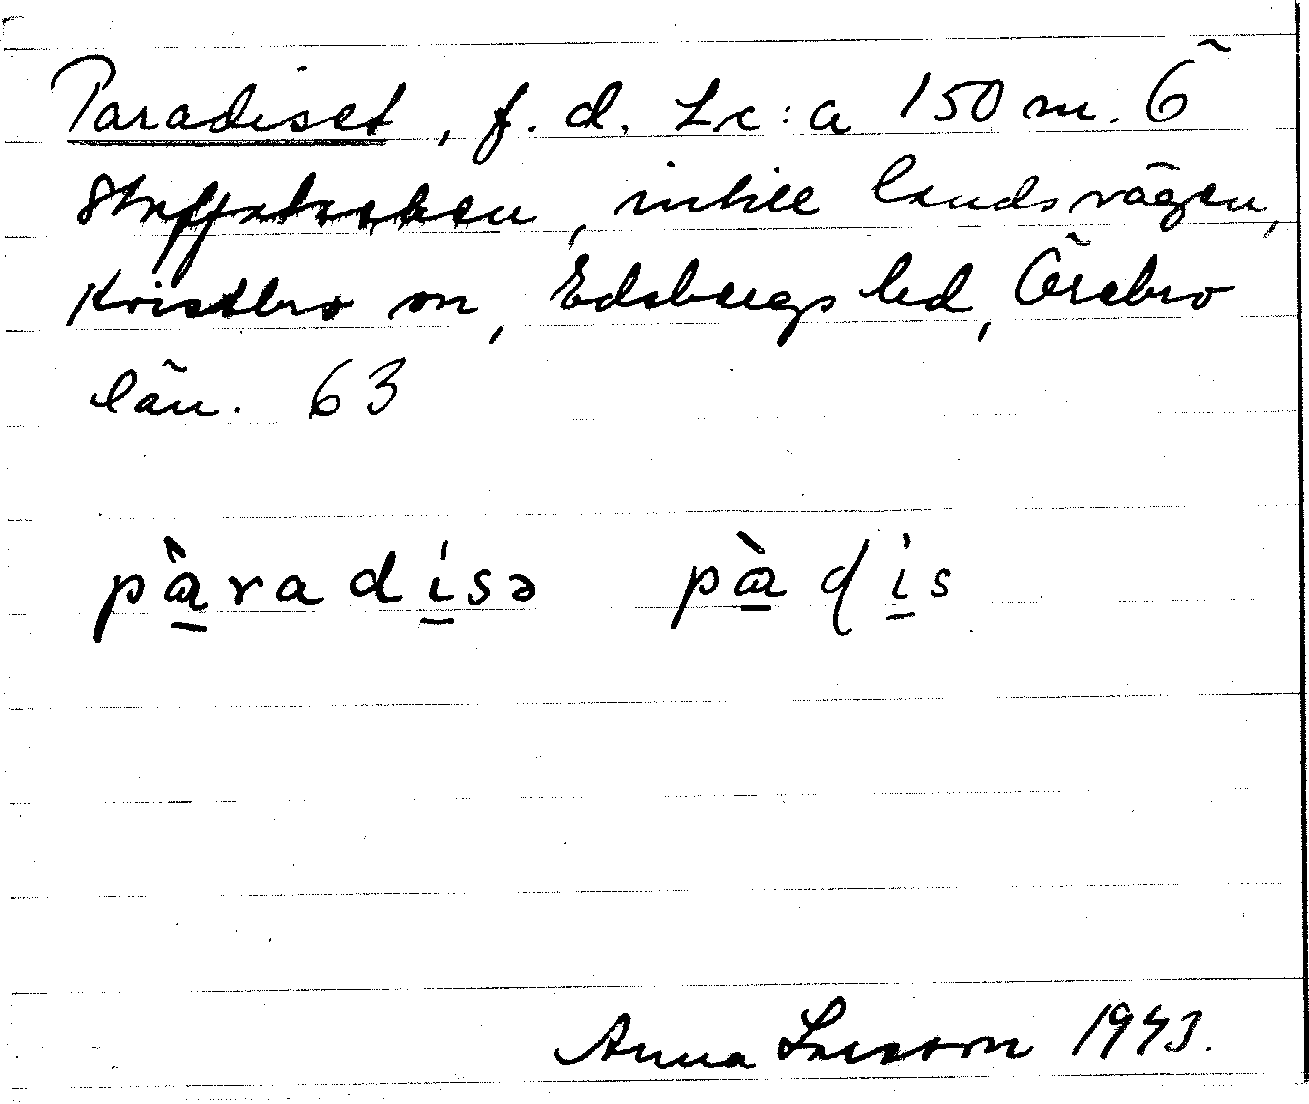 Paradiset, f. d. L c:a 150 m. Ö
intill landsvägen,
Kvistbro sn, Edsbergs hd, Örebro
län. 63
pàradísə pàdís
Anna Larsson 1943.